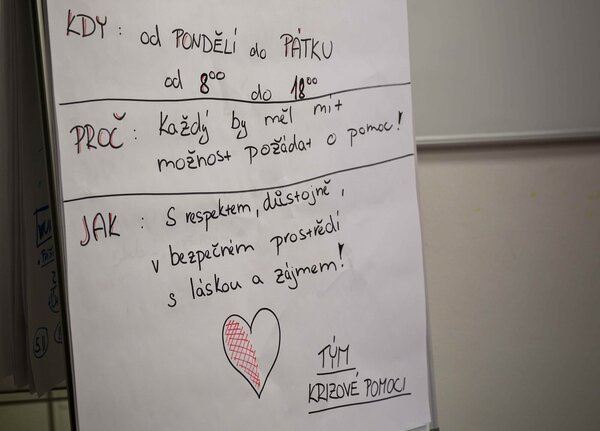 KDY : od PONDĚLÍ do PÁTKU
od 8⁰⁰ do 18⁰⁰
PROČ : Každý by měl mít
možnost požádat o pomoc!
JAK : S respektem, důstojně,
v bezpečném prostředí
s láskou a zájmem!
TÝM
KRIZOVÉ POMOCI